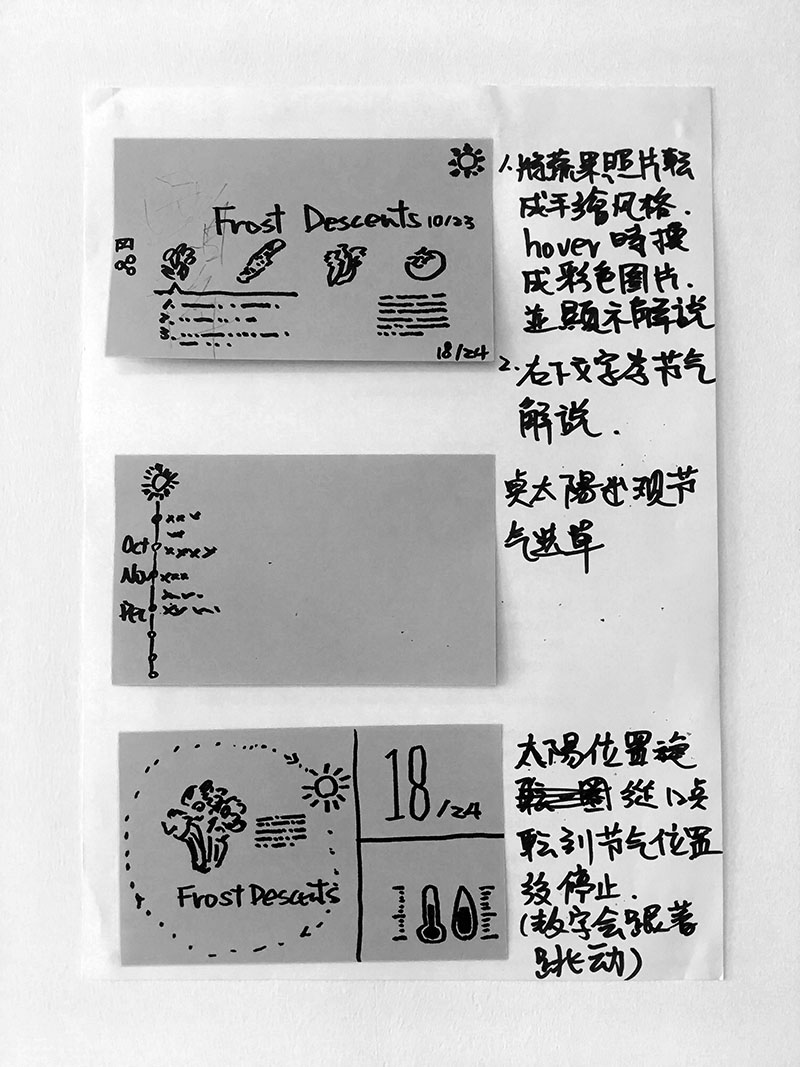 Frost Descents 10/23
1.
2.
3.
18/24
1.将蔬果照片転
成手繪风格.
hover 時換
成彩色图片.
並顯示解説
2.右下文字为节气
解説.
Oct
Nov
Dec
点太陽出现节
气选单
18/24
Frost Descents
太陽位置旋
從12点
転到节气位置
後停止.
(数字会跟著
跳动)